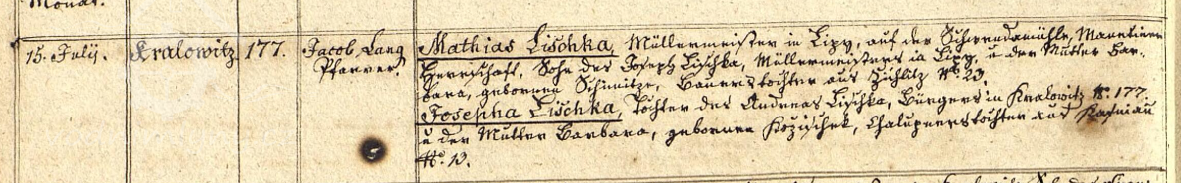 Monat.
15. July. Kralowitz 177. Jacob Lang Pfarrer. Mathias Lischka, Müllermeister in Lipy, auf der Schwendamühle, Manetiner
Herrschaft, Sohn des Joseph Lischka, Müllermeisters in Lipy, u der Mutter Bar-
bara, gebornen Schmitze, Bauerstochter aus Hichlitz N: 23.
Josepha Lischka, Tochter des Andreas Lischka, Bürgers in Kralowitz N: 177.
u der Mutter Barbara, gebornen Kozischek, Chaluppnerstochter aus Kaznau
N: 13.